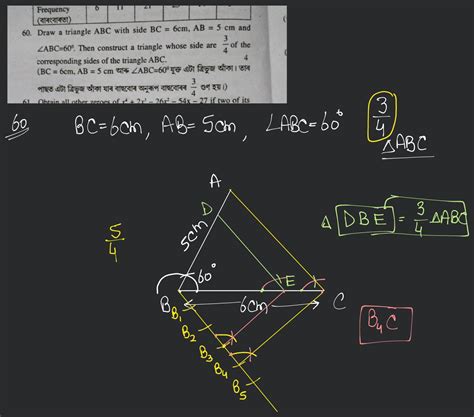 Frequency 6 11
(বাৰংবাৰতা)
60. Draw a triangle ABC with side BC = 6cm, AB = 5 cm and
∠ABC=60⁰. Then construct a triangle whose side are 3/4 of the
corresponding sides of the triangle ABC.
(BC = 6cm, AB = 5 cm আৰু ∠ABC=60⁰ যুক্ত এটা ত্ৰিভুজ আঁকা। তাৰ
পাছত এটা ত্ৰিভুজ আঁকা যাৰ বাহুবোৰ অনুৰূপ বাহুবোৰৰ 3/4 গুণ হয়।)
61. Obtain all other zeroes of x⁴ + 2x³ - 26x² - 54x - 27 if two of its
60 BC=6cm, AB=5cm, ∠ABC=60° 3/4
△ABC
A
D
5cm
△ DBE = 3/4 △ABC
5/4
60°
E
B 6cm C
B₁
B₂
B₃
B₄
B₅
B₄C